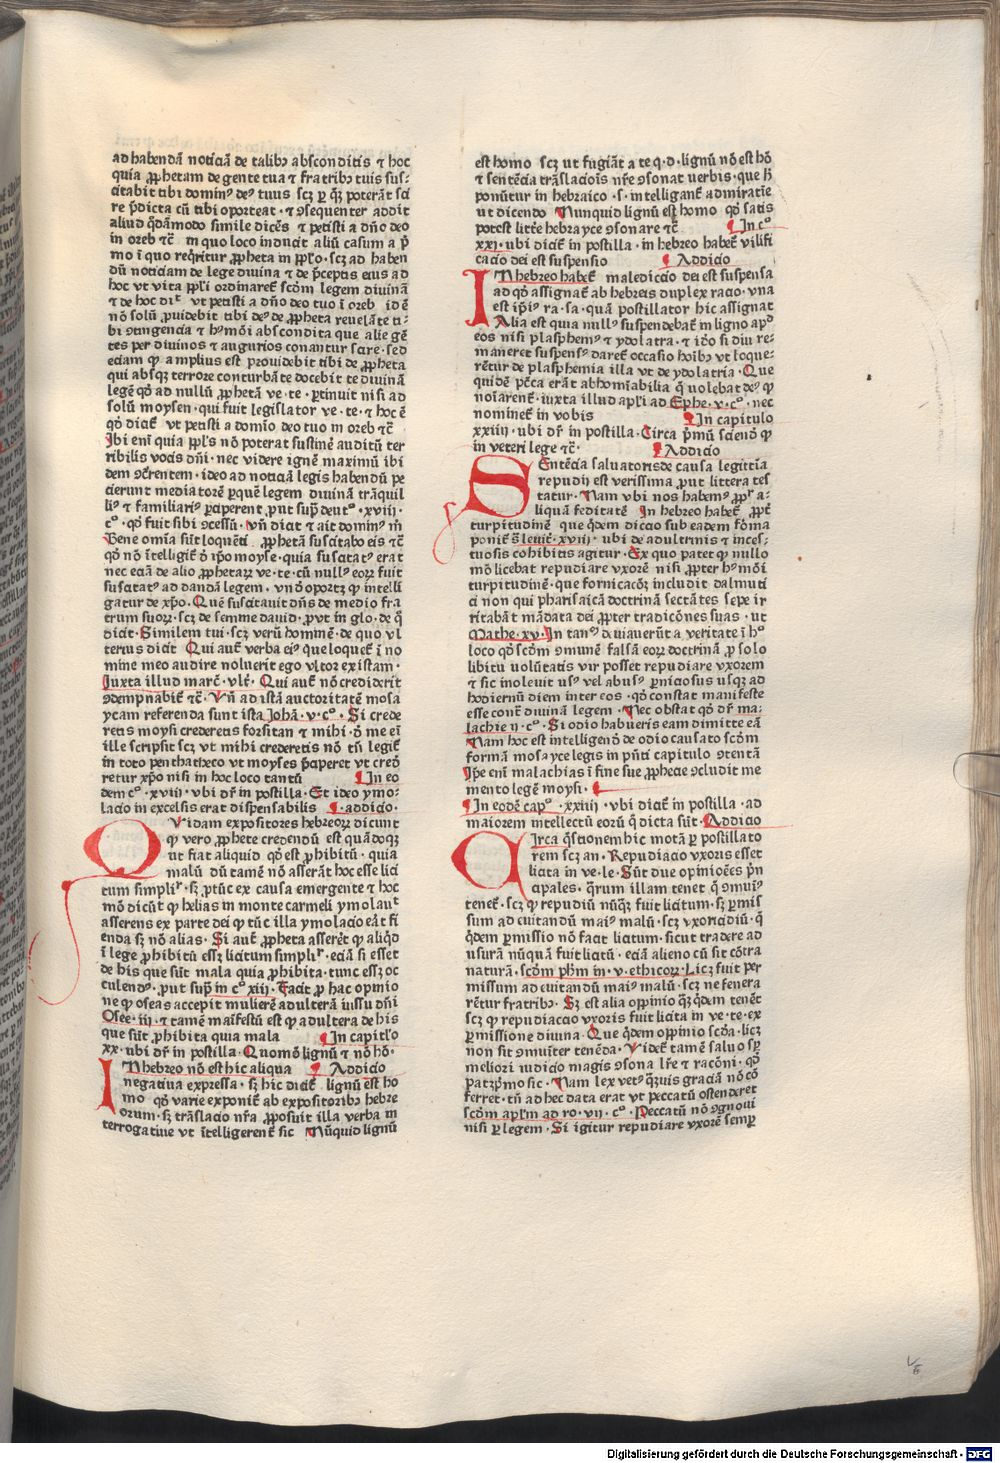 ad habendā noticiā de talibꝫ absconditis ⁊ hoc
quia ꝓphetam de gente tua ⁊ fratribꝫ tuis sus⸗
citabit tibi dominꝰ deꝰ tuus scꝫ ꝑ qꝫ poterāt sci
re p̄dicta cū tibi oporteat · ⁊ ꝯsequenter addit
aliud qd̄āmodo simile dicēs ⁊ petisti a dn̄o deo
in oreb ⁊c̄ in quo loco inducit aliū casum a p̄
mo ī quo req̄ritur ꝓpheta in pp̄lo · scꝫ ad haben
dū noticiam de lege diuina ⁊ de p̄ceptis eius ad
hoc vt vita pp̄li ordinaret̄ scd̄m legem diuinā
⁊ de hoc dit̄ vt petisti a dn̄o deo tuo ī oreb id ē
nō solū ꝓuidebit tibi deꝰ de ꝓpheta reuelāte ti⸗
bi ꝯtingencia ⁊ hꝰmōi abscondita que alie gē
tes per diuinos ⁊ augurios conantur scire · sed
eciam ꝙ amplius est prouidebit tibi de ꝓpheta
qui absqꝫ terrore conturbāte docebit te diuinā
legē qd̄ ad nullū ꝓphetā ve · te · ꝑtinuit nisi ad
solū moysen · qui fuit legislator ve · te · ⁊ hoc ē
qd̄ dicit̄ vt petisti a domīo deo tuo in oreb ⁊c̄
Ibi enī quia pp̄ls nō poterat sustinē auditū ter
ribilis vocis dn̄i · nec videre ignē maximū ibi
dem ꝯc̄rentem · ideo ad noticiā legis habendū pe
cierunt mediatorē ꝑ quē legem diuinā trāquil
liꝰ ⁊ familiariꝰ ꝑciperent · put sup̄ deutꝰ · xviij ·
cͦ · qd̄ fuit sibi ꝯcessū · vn̄ dicit ⁊ ait dominꝰ m̄
Bene omīa sūt loquēti · ꝓphetā suscitabo eis ⁊c̄
qd̄ nō ītelligit̄ d̄ ip̄o moyse · quia suscitatꝰ erat
nec eciā de alio ꝓphetaꝝ ve · te · cū nullꝰ eoꝝ fuit
suscitatꝰ ad dandā legem · vn̄ oportꝫ ꝙ intelli
gatur de xp̄o · Quē suscitauit dn̄s de medio fra
trum suoꝝ · scꝫ de semine dauid · ꝓvt in glo · de q̄
dicit · Similem tui · scꝫ verū hominē · de quo vl
terius dicit Qui aut̄ verba eiꝰ que loquet̄ ī no
mine meo audire noluerit ego vltor existam ·
Iuxta illud marc̄ · vlt̄ · Qui aut̄ nō crediderit
ꝯdempnabit̄ ⁊c̄ · Vn̄ ad istā auctoritatē mosa
ycam referenda sunt ista Johā · v · cͦ · Si crede
retis moysi crederetis forsitan ⁊ mihi · d̄ me eī
ille scripsit scꝫ vt mihi crederetis nō tū legit̄
in toto penthatheco vt moyses p̄ciperet vt cred̄
retur xp̄o nisi in hoc loco tantū ¶ In eo
dem cͦ · xviij · vbi dr̄ in postilla · Et ideo ymo⸗
lacio in excelsis erat dispensabilis ¶ · addicio ·
Qvidam expositores hebreoꝝ dicunt
ꝙ vero ꝓphete credendū est quādoqꝫ
ut fiat aliquid qd̄ est ꝓhibitū · quia
malū dū tamē nō asserāt hoc esse lici
tum simplīr · sꝫ ꝑtūc ex causa emergente ⁊ hoc
mō dicūt ꝙ helias in monte carmeli ymolauit
asserens ex parte dei ꝙ tūc illa ymolacio eāt fi
enda sꝫ nō alias · Si aut̄ ꝓpheta asserēt ꝙ aliqd̄
ī lege ꝓhibitū essꝫ licitum simplīr · eciā si esset
de his que sūt mala quia ꝓhibita · tunc essꝫ oc
culendꝰ · put sup̄ in cͦ xiij · Facit ꝓ hac opinio
ne ꝙ oseas accepit mulierē adulterā iussu dn̄i
Osee · iij · ⁊ tamē maīfestū est ꝙ adultera de his
que sūt ꝓhibita quia mala ¶ In capitl̄o
xx · ubi dr̄ in postilla · Quomō lignū ⁊ nō hō ·
IN hebreo nō est hic aliqua ¶ Addicio
negatiua expressa · sꝫ hic dicit̄ lignū est ho
mo qd̄ varie exponit̄ ab expositoribꝫ hebre
orum · sꝫ trāslacio nr̄a ꝓposuit illa verba in
terrogatiue vt ītelligerent̄ sic Nūquid lignū
est homo scꝫ ut fugiāt a te q · d · lignū nō est hō
⁊ sentēcia trāslacioīs nr̄e ꝯsonat verbis · que h̄
ponūtur in hebraico · s · intelligant̄ admiratīe
ut dicendo Nunquid lignū est homo qd̄ satis
potest litter̄e hebrayce ꝯsonare ⁊c̄ ¶ In cͦ
xxj · vbi dicit̄ in postilla · in hebreo habet̄ vilifi
cacio dei est suspensio ¶ Addicio
IN hebreo habet̄ maledicio dei est suspensa
ad qd̄ assignat̄ ab hebreis duplex racio · vna
est ip̄iꝰ ra · sa · quā postillator hic assignat
Alia est quia nullꝰ suspendebat̄ in ligno apd̄
eos nisi plasphemꝰ ⁊ ydolatra · ⁊ id̄o si diu re⸗
maneret suspensꝰ daret̄ occasio hoībꝫ vt loque⸗
rētur de plasphemia illa vt de ydolatria · Que
quidē pct̄a erāt abhomīabilia q̄ volebat deꝰ ꝙ
noīarent̄ · iuxta illud apl̄i ad Ephe · v · cͦ · nec
nominet̄ in vobis ¶ In capitulo
xxiiij · ubi dr̄ in postilla · Circa p̄mū sciēd̄ ꝙ
in veteri lege ⁊c̄ · ¶ Addicio
SEntēcia saluatoris de causa legittīa
repudij est verissima ꝓut littera tes
tatur · Nam vbi nos habemꝰ ꝓpt̄ a⸗
liquā feditatē In hebreo habet̄ ꝓpt̄
turpitudinē que q̄dem dictio sub eadem foīma
ponit̄ s̄ leuit̄ · xviij · ubi de adulterinis ⁊ inces⸗
tuosis cohibitis agitur · Ex quo patet ꝙ nullo
mō licebat repudiare vxorē nisi ꝓpter hꝰmōi
turpitudinē · que fornicacōꝫ includit dalmuti
ci non qui pharisaicā doctrinā sectātes sepe ir
ritabāt mādata dei ꝓpter tradicōnes suas · ut
Mathe · xv · In tantꝰ deuiauerūt a veritate ī hͦ
loco qd̄ scd̄m ꝯmunē falsā eoꝝ doctrinā ꝓ solo
libitu volūtatis vir posset repudiare vxorem
⁊ sic inoleuit usꝰ vel abusꝰ ꝑniciosus usqꝫ ad
hodiernū diem inter eos · qd̄ constat manifeste
esse cont̄ diuinā legem · Nec obstat qd̄ dr̄ ma⸗
lachie ij · cͦ · Si odio habueris eam dimitte eā
Nam hoc est intelligend̄ de odio causato scd̄m
formā mosayce legis in pn̄ti capitulo ꝯtentā
Ip̄e enī malachias ī fine sue ꝓphecie ꝯcludit me
mento legē moysi · ¶
¶ In eodē capͦ · xxiiij · vbi dicit̄ in postilla · ad
maiorem intellectū eorū q̄ dicta sūt · ¶ Addicio
CIrca q̄stionem hic motā ꝑ postillato
rem scꝫ an · Repudiacio vxoris esset
licita in ve · le · Sūt due opiniōēs p̄n
cipales · q̄rum illam tenet q̄ ꝯmuīꝰ
tenet̄ · scꝫ ꝙ repudiū nūqꝫ fuit licitum · sꝫ ꝑmis
sum ad euitandū maiꝰ malū · scꝫ vxoricidiū · q̄
q̄dem ꝑmissio nō facit licitum · sicut tradere ad
usurā nūquā fuit licitū · eciā alieno cū sit cōtra
naturā · scd̄m ph̄m in · v · ethicoꝝ · Licꝫ fuit per
missum ad euitandū maiꝰ malū · scꝫ ne fenera
rētur fratribꝫ · Sꝫ est alia oppinio qꝫ q̄dem tenēt
scꝫ ꝙ repudiacio vxoris fuit licita in ve · te · ex
ꝑmissione diuina · Que q̄dem oppinio scd̄a · licꝫ
non sit ꝯmuīter tenēda · Videt̄ tamē saluo sꝑ
meliori iudicio magis ꝯsona lr̄e ⁊ racōni · qd̄
patꝫ p̄mo sic · Nam lex vetꝰ q̄uis graciā nō cō
ferret · tū ad hec data erat vt peccatū ostenderet
scd̄m apl̄m ad ro · vij · cͦ · Peccatū nō ꝯgnoui
nisi ꝑ legem · Si igitur repudiare vxorē semꝑ
Digitalisierung gefördert durch die Deutsche Forschungsgemeinschaft - DFG